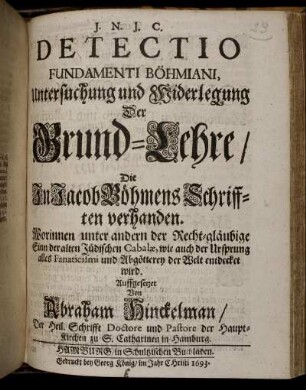 J. N. J. C.
DETECTIO
FUNDAMENTI BÖHMIANI,
Untersuchung und Widerlegung
Der
Grund-Lehre/
Die
In Jacob Böhmens Schriff-
ten verhanden.
Worinnen unter andern der Recht-gläubige
Sinn der alten Jüdischen Cabalæ, wie auch der Ursprung
alles Fanaticismi und Abgötterey der Welt entdecket
wird.
Auffgesetzet
Von
Abraham Hinckelman/
Der Heil. Schrifft Doctore und Pastore der Haupt-
Kirchen zu S. Catharinen in Hamburg.
HAMBURG, in Schultzischen Buchladen.
Gedruckt bey Georg König/ im Jahr Christi 1693.